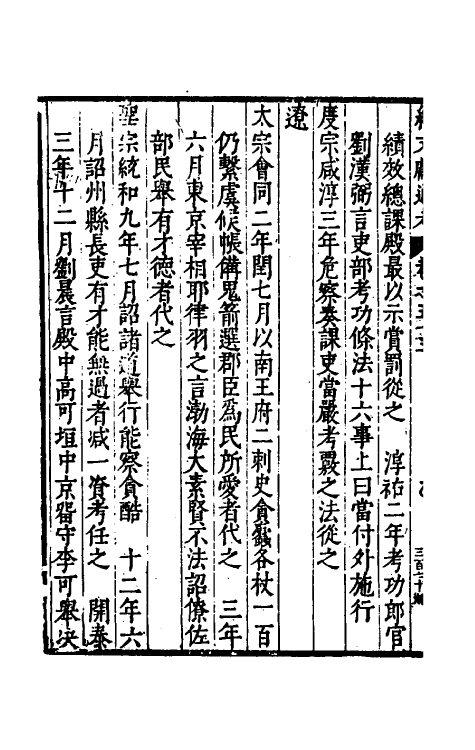 績效總課殿最以示賞罰從之　淳祐二年考功郎官
劉漢弼言吏部考功條法十六事上曰當付外施行
度宗咸淳三年危察奏課吏當嚴考覈之法從之
遼
太宗會同二年閏七月以南王府二刺史貪蠹各杖一百
仍繫虞候帳備鬼箭選郡臣為民所愛者代之　三年
六月東京宰相耶律羽之言渤海大素賢不法詔僚佐
部民舉有才德者代之
聖宗統和九年七月詔諸道舉行能察貪酷　十二年六
月詔州縣長吏有才能無過者减一資考任之　開泰
三年十二月劉晨言殿中高可垣中京留守李可舉决